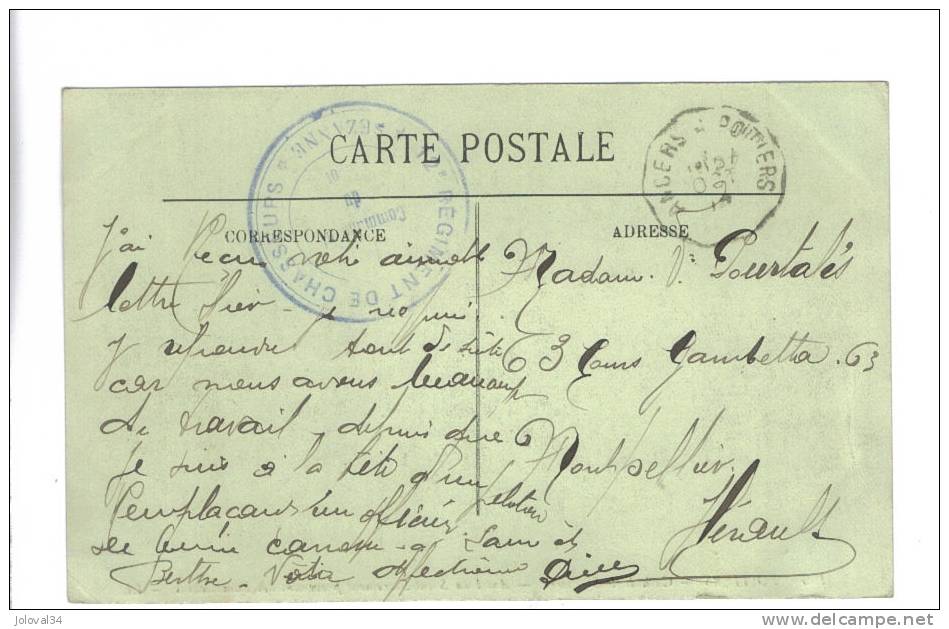 CARTE POSTALE
CORRESPONDANCE
ADRESSE
RÉGIMENT DE CHASSEURS * SÉZANNE *
du
ANGERS A POITIERS
J'ai Recu votre aimable
lettre hier - je ne puis
y repondre tout de suite
car nous avons beaucoup
de travail - depuis
je suis à la tête d'un peloton
Remplaçant un officier
Berthe - Votre
Madame V. Pourtalés
63 Cours Gambetta. 63
Montpellier.
Hérault
joloval34
www.delcampe.net